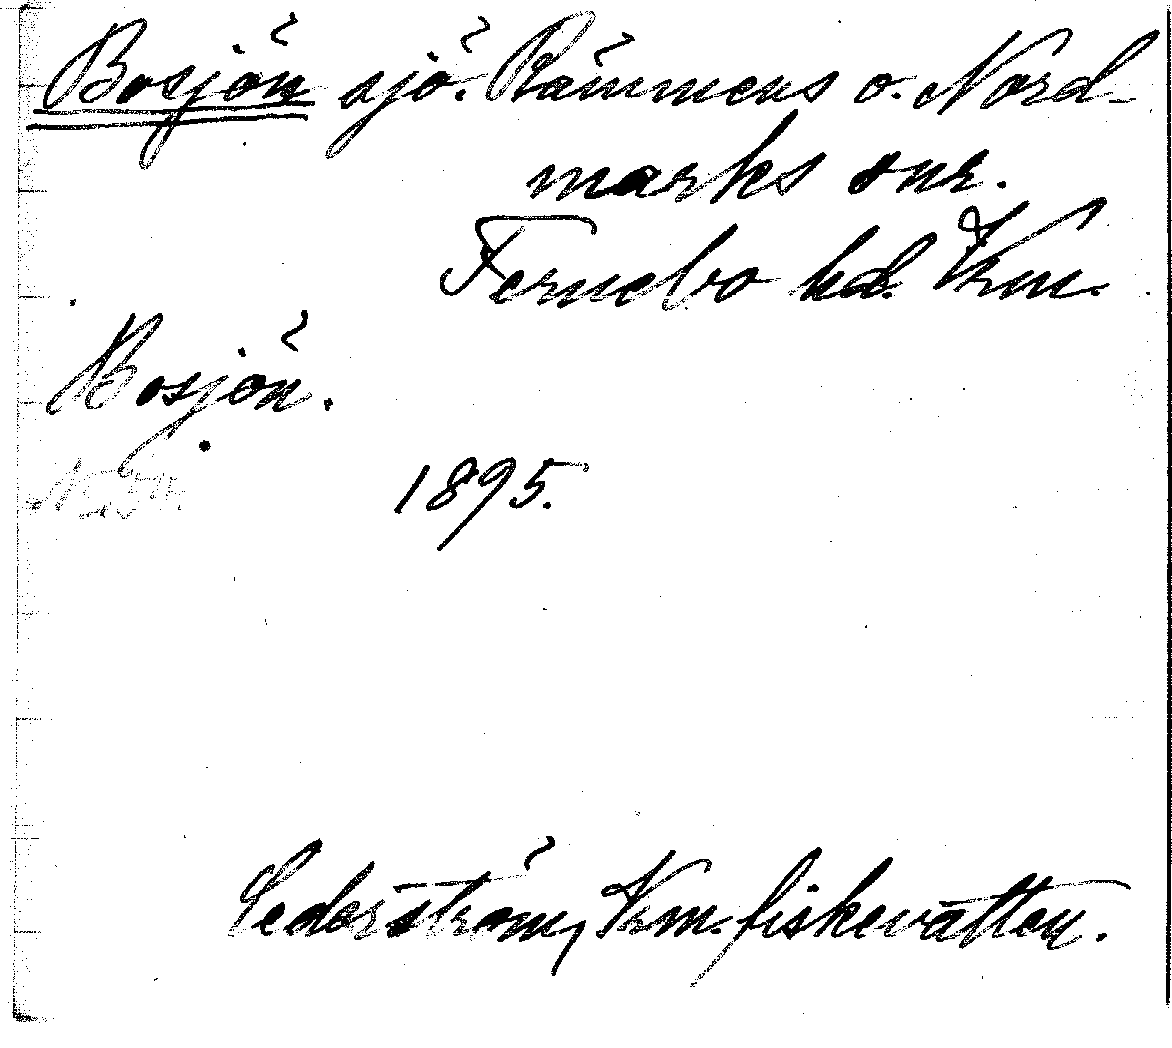 Bosjön sjö. Rämmens o. Nord-
marks snr.
Fernebo hd. Vrm.
Bosjön.
1895.
Cederström, Vrm. fiskevatten.